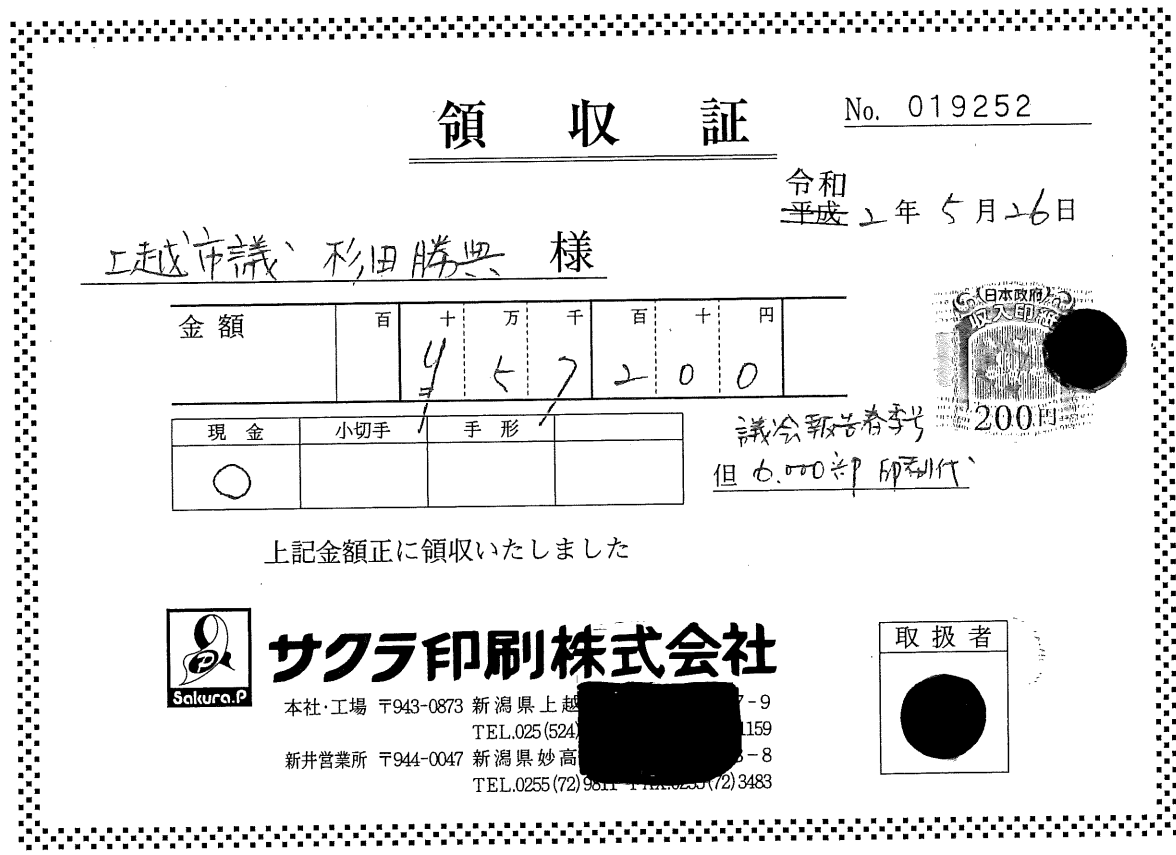 領収証
No. 019252
令和
平成 2年 5月26日
上越市議 杉田勝典 様
金額 百 十 万 千 百 十 円
¥ 5 7 2 0 0
日本政府
収入印紙
200円
現金 小切手 手形
○
議会報告春季号
但 6.000部 印刷代
上記金額正に領収いたしました
Sakura.P
サクラ印刷株式会社
取扱者
本社・工場 〒943-0873 新潟県上越 7-9
TEL.025(524) 1159
新井営業所 〒944-0047 新潟県妙高 3-8
TEL.0255(72)9811 FAX.0255(72)3483